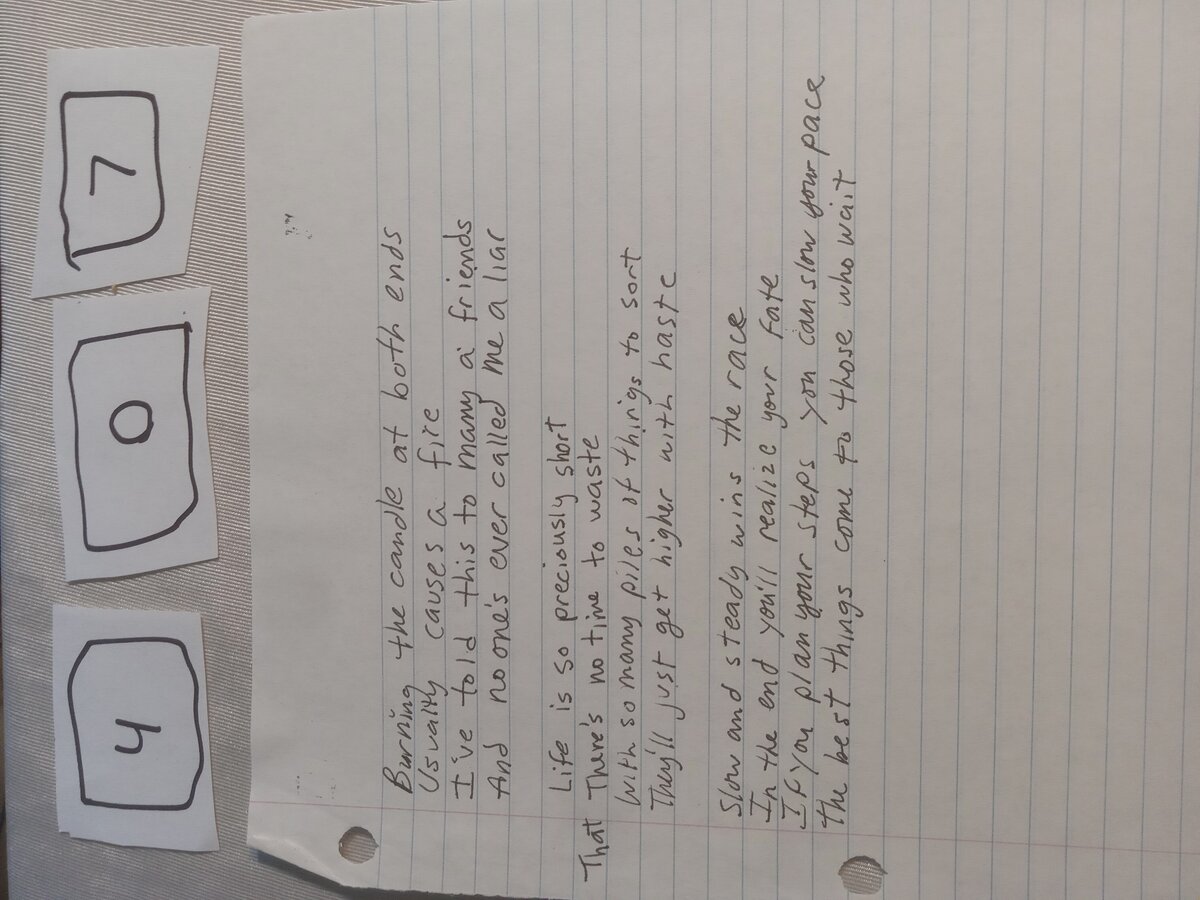 4 0 7
Burning the candle at both ends
Usually causes a fire
I've told this to many a friends
And no one's ever called me a liar
Life is so preciously short
That There's no time to waste
With so many piles of things to sort
They'll just get higher with haste
Slow and steady wins the race
In the end you'll realize your fate
If you plan your steps you can slow your pace
The best things come to those who wait